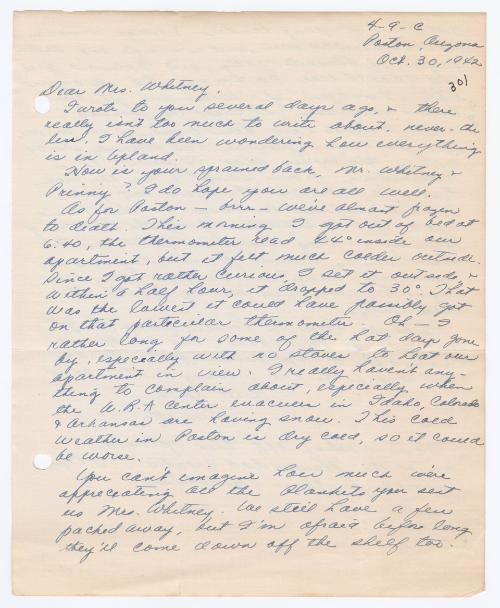 4-9-C
Poston, Arizona
Oct. 30, 1942
301
Dear Mrs. Whitney,
I wrote to you several days ago, & there
really isn't too much to write about, never-the
less, I have been wondering how everything
is in Upland.
How is your sprained back, Mr. Whitney &
Prinny? I do hope you are all well.
As for Poston — brrr — we've almost frozen
to death. This morning I got out of bed at
6:40, the thermometer read 44° inside our
apartment, but it felt much colder outside.
Since I got rather curious I set it outside &
within a half hour, it dropped to 30°. That
was the lowest it could have possibly got
on that particular thermometer. Oh — I
rather long for some of the hot days gone
by, especially with no stoves to heat our
apartment in view. I really haven't any-
thing to complain about, especially when
the W.R.A Center evacuees in Idaho, Colorado
& Arkansas are having snow. This cold
weather in Poston is dry cold, so it could
be worse.
You can't imagine how much we're
appreciating all the blankets you sent
us Mrs. Whitney. We still have a few
packed away, but I'm afraid before long
they'll come down off the shelf too.